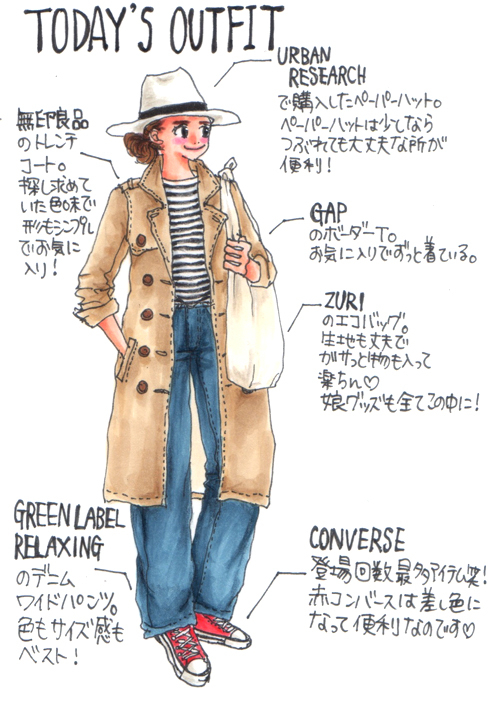 TODAY'S OUTFIT
URBAN
RESEARCH
で購入したペーパーハット。
ペーパーハットは少しなら
つぶれても大丈夫な所が
便利！
無印良品
のトレンチ
コート。
探し求めて
いた色味で
形もシンプル
でお気に
入り！
GAP
のボーダーT。
お気に入りでずっと着ている。
ZURI
のエコバッグ。
生地も丈夫で
ガサっと物も入って
楽ちん♡
娘グッズも全てこの中に！
GREEN LABEL
RELAXING
のデニム
ワイドパンツ。
色もサイズ感も
ベスト！
CONVERSE
登場回数最多アイテム笑！
赤コンバースは差し色に
なって便利なのです♡